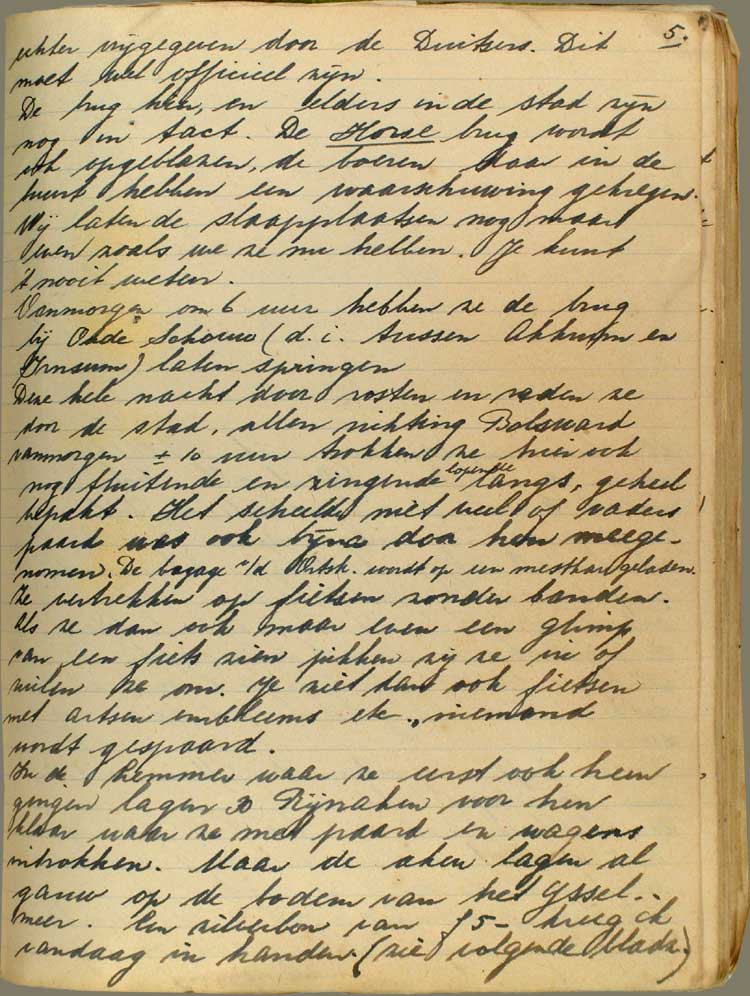 5.
echter vrijgegeven door de Duitsers. Dit
moet wel officieel zijn.
De brug hier, en elders in de stad zijn
nog in tact. De Horse brug wordt
ook opgeblazen, de boeren daar in de
buurt hebben een waarschuwing gekregen.
Wij laten de slaapplaatsen nog maar
even zoals we ze nu hebben. Je kunt
't nooit weten.
Vanmorgen om 6 uur hebben ze de brug
bij Oude Schouw (d.i. tussen Akkrum en
Irnsum) laten springen
Deze hele nacht door rosten en reden ze
door de stad, allen richting Bolsward
vanmorgen ± 10 uur trokken ze hier ook
nog fluitende en zingende lopende langs, geheel
bepakt. Het scheelde niet veel of vaders
paard was ook bijna door hen meege-
nomen. De bagage v/d Ortsk. wordt op een mestkar geladen.
Ze vertrekken op fietsen zonder banden.
Als ze dan ook maar even een glimp
van een fiets zien pikken zij ze in of
ruilen ze om. Je ziet dan ook fietsen
met artsen embleems etc., niemand
wordt gespaard.
In de Lemmer waar ze eerst ook heen
gingen lagen 30 Rijnaken voor hen
klaar waar ze met paard en wagens
introkken. Maar de aken lagen al
gauw op de bodem van het IJssel-
meer. Een zilverbon van f 5- kreeg ik
vandaag in handen. (zie volgende bladz.)